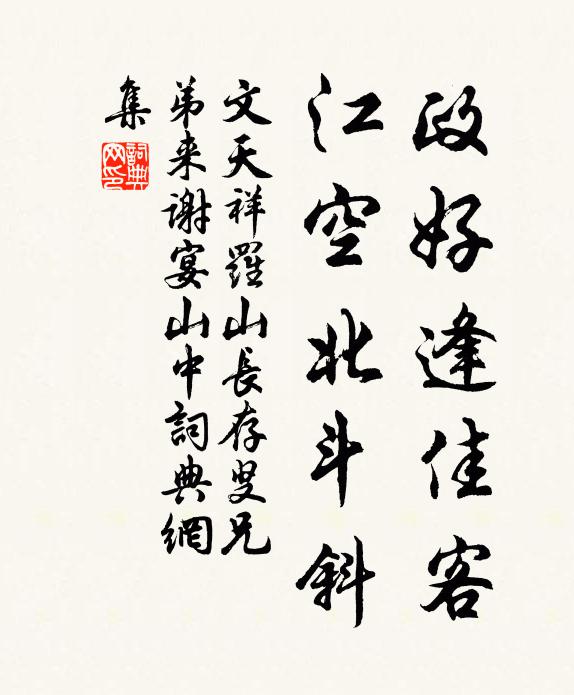 政好逢佳客
江空北斗斜
文天祥羅山長存叟兄
弟来謝宴山中詞典網
集
詞典
网印